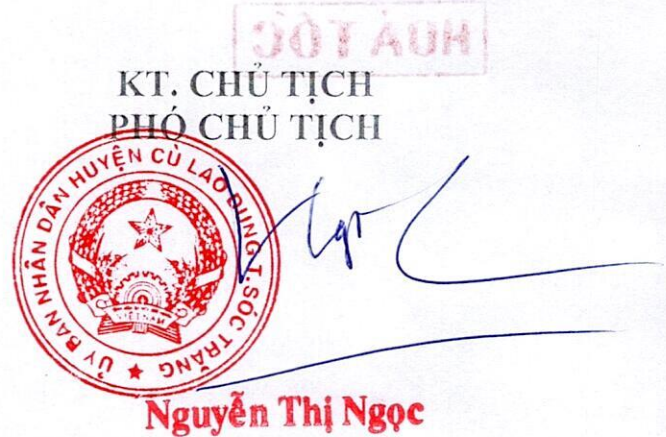 HOẢ TỐC
KT. CHỦ TỊCH
PHÓ CHỦ TỊCH
ỦY BAN NHÂN DÂN HUYỆN CÙ LAO DUNG T. SÓC TRĂNG
VIỆT NAM
Ngọc
Nguyễn Thị Ngọc